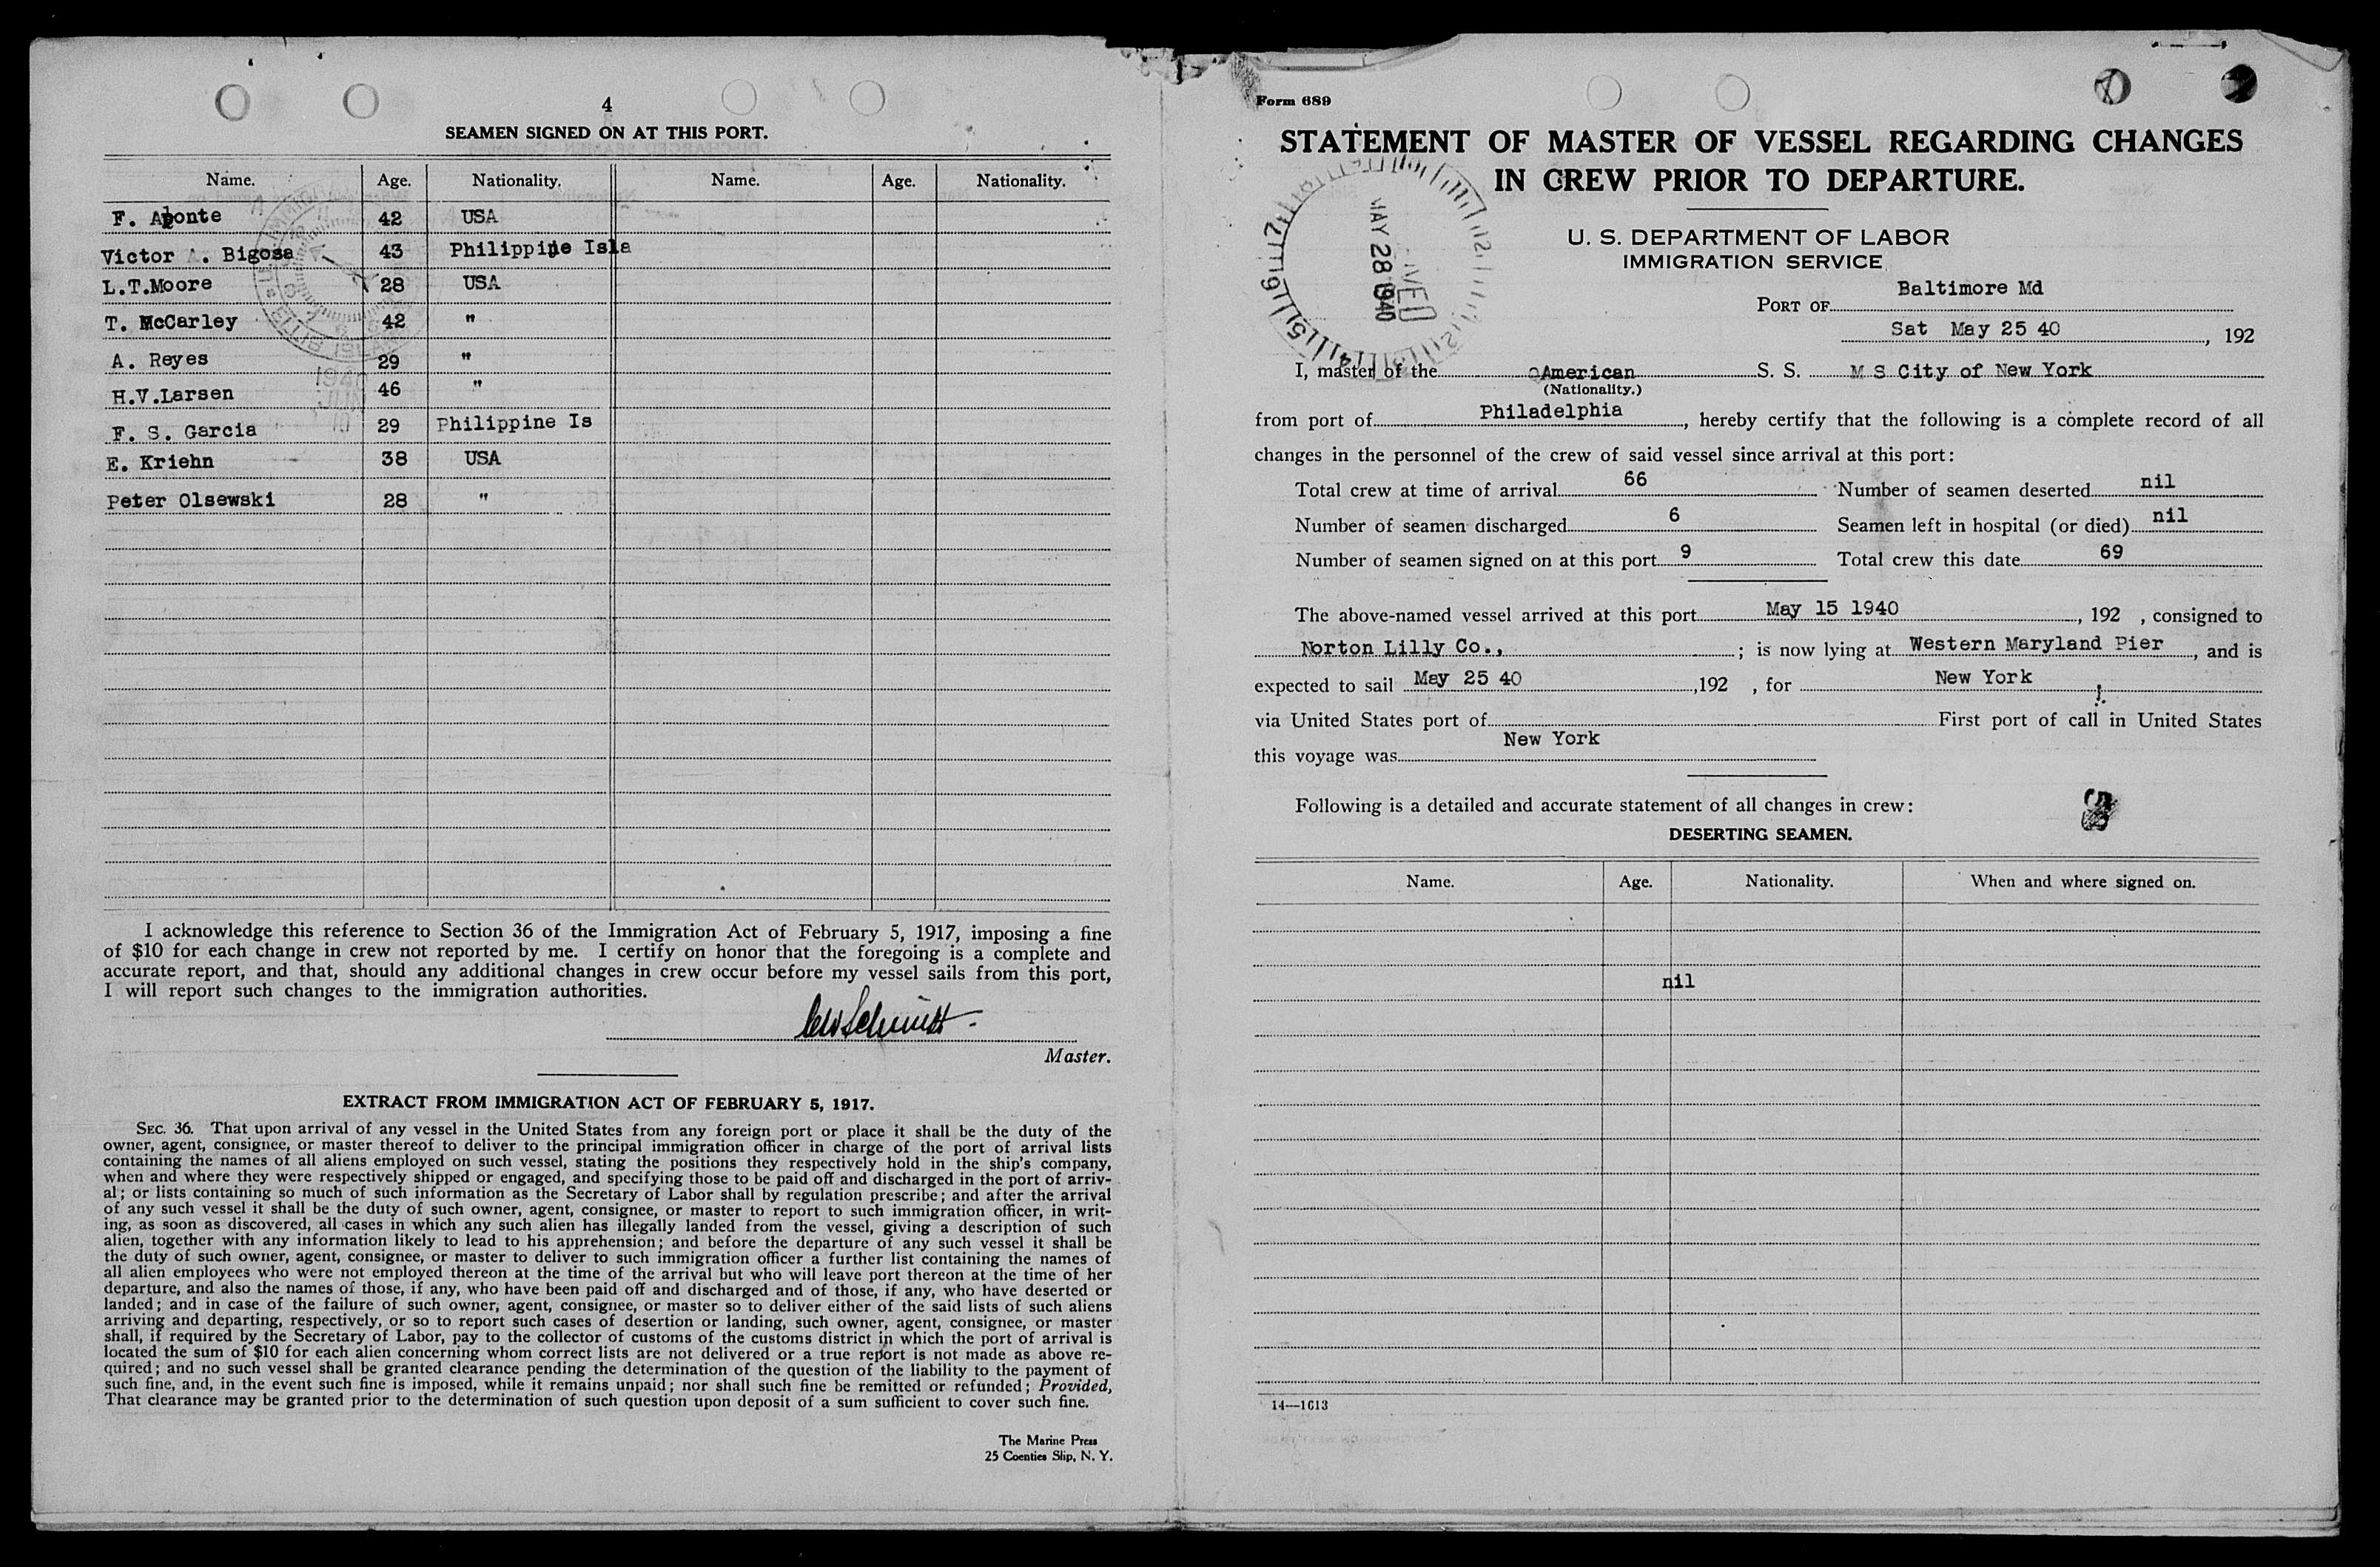 4
SEAMEN SIGNED ON AT THIS PORT.
Name. Age. Nationality. Name. Age. Nationality.
F. Aponte 42 USA
Victor . Bigosa 43 Philippine Isla
L.T.Moore 28 USA
T. McCarley 42 "
A. Reyes 29 "
H.V.Larsen 46 "
F. S. Garcia 29 Philippine Is
E. Kriehn 38 USA
Peter Olsewski 28 "
I acknowledge this reference to Section 36 of the Immigration Act of February 5, 1917, imposing a fine
of $10 for each change in crew not reported by me. I certify on honor that the foregoing is a complete and
accurate report, and that, should any additional changes in crew occur before my vessel sails from this port,
I will report such changes to the immigration authorities.
Schmidt
Master.
EXTRACT FROM IMMIGRATION ACT OF FEBRUARY 5, 1917.
SEC. 36. That upon arrival of any vessel in the United States from any foreign port or place it shall be the duty of the
owner, agent, consignee, or master thereof to deliver to the principal immigration officer in charge of the port of arrival lists
containing the names of all aliens employed on such vessel, stating the positions they respectively hold in the ship's company,
when and where they were respectively shipped or engaged, and specifying those to be paid off and discharged in the port of arriv-
al; or lists containing so much of such information as the Secretary of Labor shall by regulation prescribe; and after the arrival
of any such vessel it shall be the duty of such owner, agent, consignee, or master to report to such immigration officer, in writ-
ing, as soon as discovered, all cases in which any such alien has illegally landed from the vessel, giving a description of such
alien, together with any information likely to lead to his apprehension; and before the departure of any such vessel it shall be
the duty of such owner, agent, consignee, or master to deliver to such immigration officer a further list containing the names of
all alien employees who were not employed thereon at the time of the arrival but who will leave port thereon at the time of her
departure, and also the names of those, if any, who have been paid off and discharged and of those, if any, who have deserted or
landed; and in case of the failure of such owner, agent, consignee, or master so to deliver either of the said lists of such aliens
arriving and departing, respectively, or so to report such cases of desertion or landing, such owner, agent, consignee, or master
shall, if required by the Secretary of Labor, pay to the collector of customs of the customs district in which the port of arrival is
located the sum of $10 for each alien concerning whom correct lists are not delivered or a true report is not made as above re-
quired; and no such vessel shall be granted clearance pending the determination of the question of the liability to the payment of
such fine, and, in the event such fine is imposed, while it remains unpaid; nor shall such fine be remitted or refunded; Provided,
That clearance may be granted prior to the determination of such question upon deposit of a sum sufficient to cover such fine.
The Marine Press
25 Coenties Slip, N. Y.
Form 689
STATEMENT OF MASTER OF VESSEL REGARDING CHANGES
IN CREW PRIOR TO DEPARTURE.
MAY 28 1940
U. S. DEPARTMENT OF LABOR
IMMIGRATION SERVICE
PORT OF Baltimore Md
Sat May 25 40, 192
I, master of the American S. S. M S City of New York
(Nationality.)
from port of Philadelphia, hereby certify that the following is a complete record of all
changes in the personnel of the crew of said vessel since arrival at this port:
Total crew at time of arrival 66 Number of seamen deserted nil
Number of seamen discharged 6 Seamen left in hospital (or died) nil
Number of seamen signed on at this port 9 Total crew this date 69
The above-named vessel arrived at this port May 15 1940, 192 , consigned to
Norton Lilly Co., ; is now lying at Western Maryland Pier, and is
expected to sail May 25 40 ,192 , for New York
via United States port of First port of call in United States
this voyage was New York
Following is a detailed and accurate statement of all changes in crew:
DESERTING SEAMEN.
Name. Age. Nationality. When and where signed on.
nil
14—1613